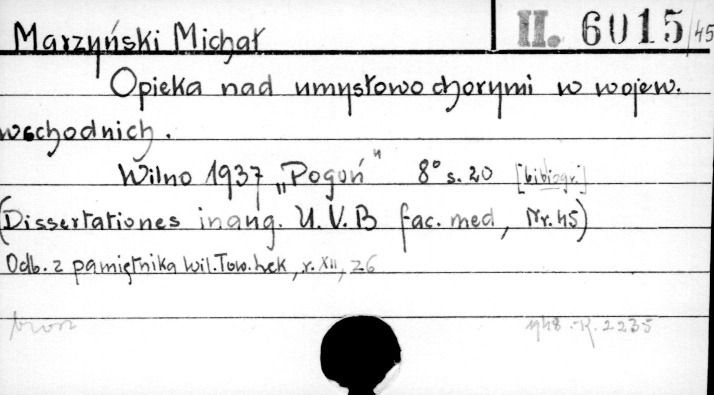 Marzyński Michał II. 6015/45
Opieka nad umysłowo chorymi w wojew.
wschodnich.
Wilno 1937 „Pogoń" 8° s. 20 [bibiogr.]
(Dissertationes inaug. U.V.B fac. med, Nr. 45)
Odb. z pamiętnika Wil. Tow. Lek, r. XII, z 6
brosz 1948 -K. 2235